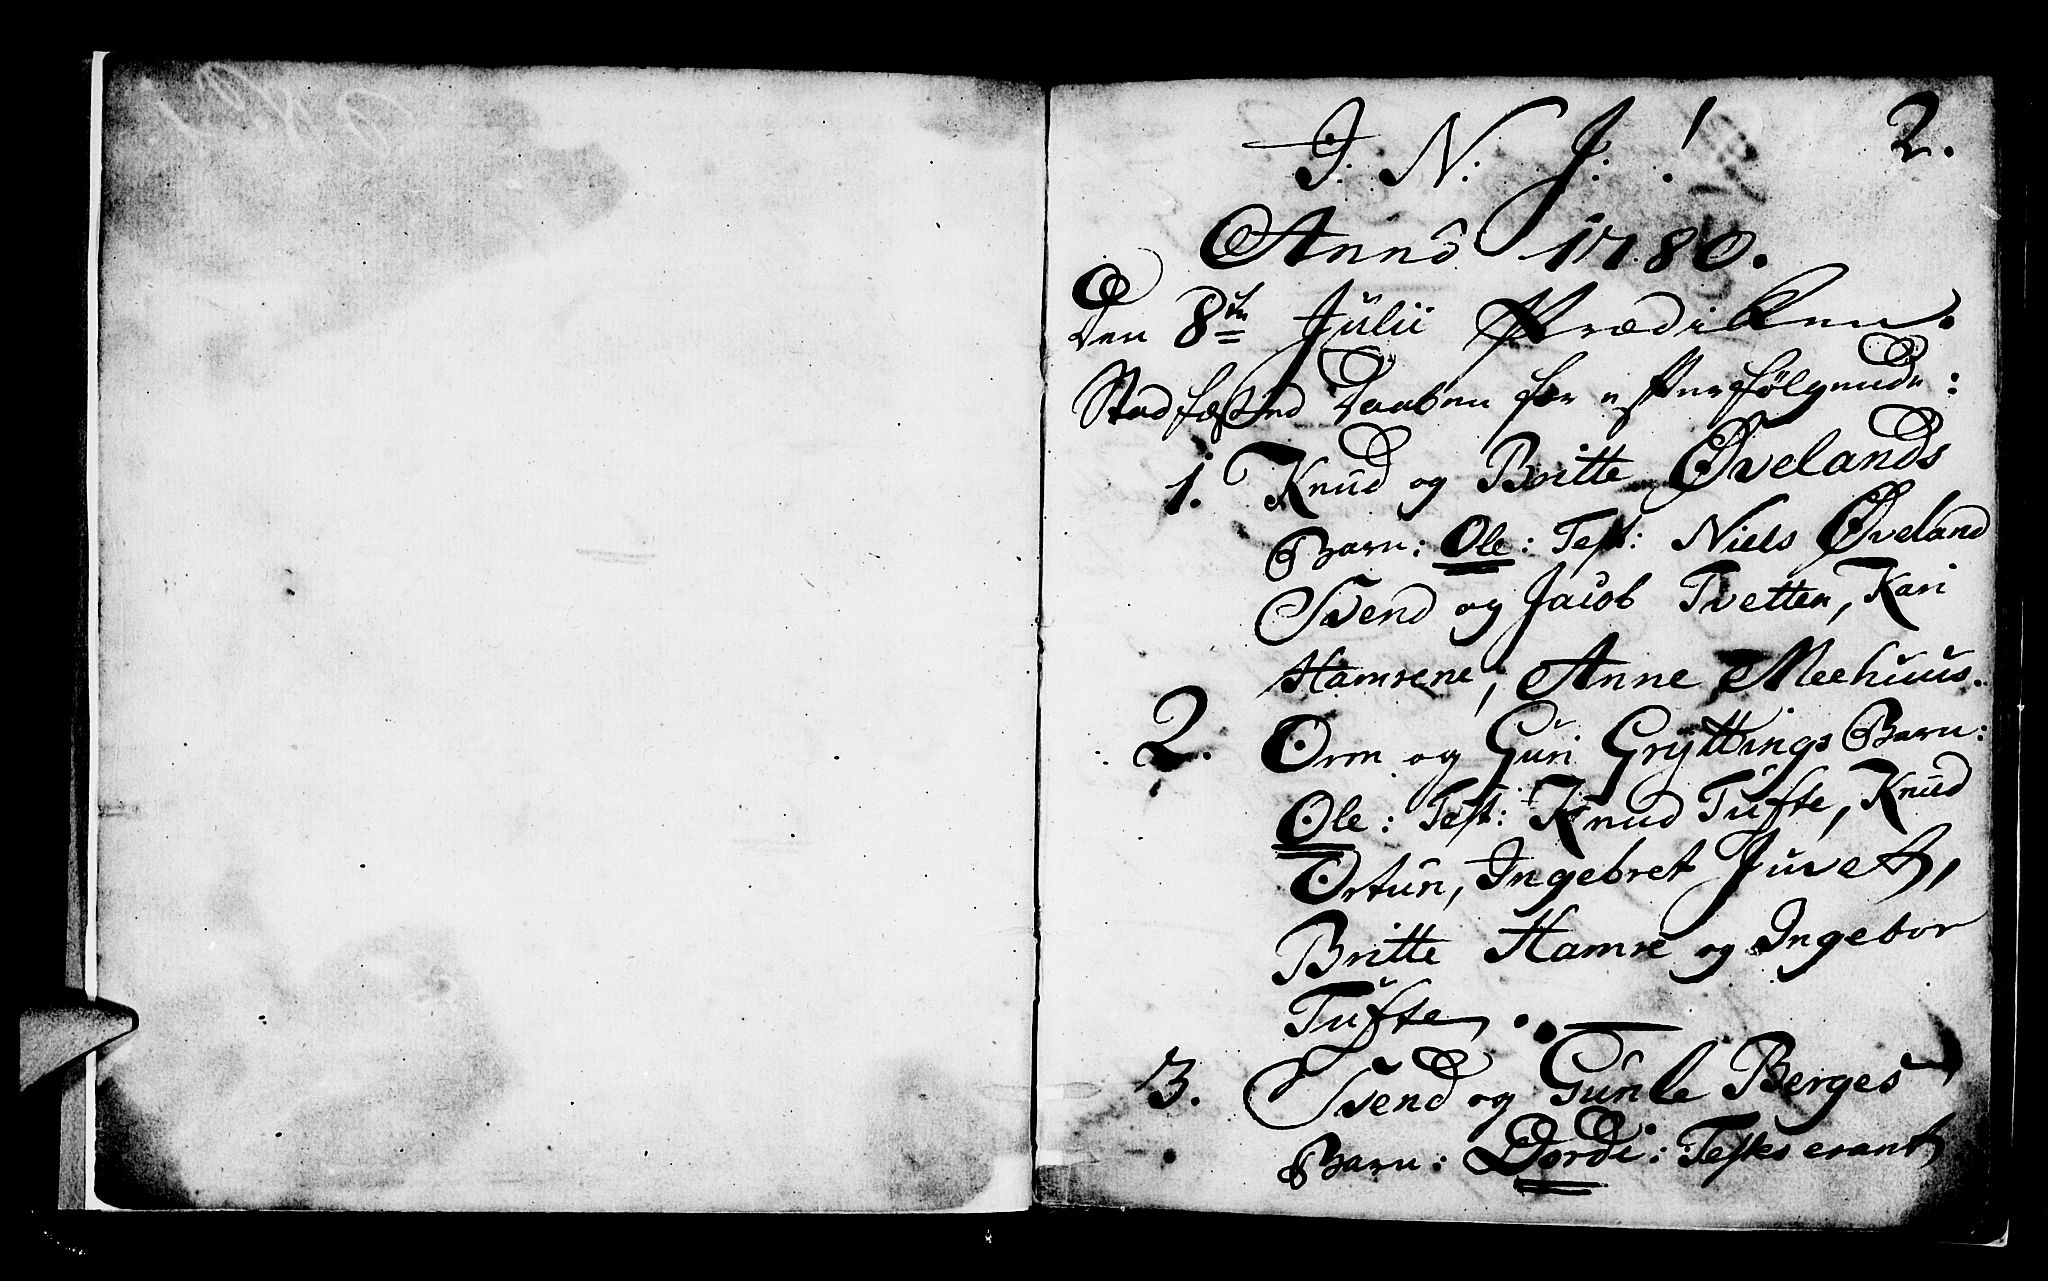 2.
J. N. J. !
Anno 1780.
Den 8de Julii Prædiken.
Stadfæsted Daaben for efterfølgende:
1. Knud og Britte Øvelands
Barn: Ole: Test: Niels Øveland
Svend og Jacob Tvetten, Kari
Hamrene, Anne Meehuus.
2. Orm og Guri Gryttings Barn:
Ole: Test: Knud Tufte, Knud
Ortun, Ingebret Juvet,
Britte Hamre og Ingebor
Tufte.
3. Svend og Gunle Berges
Barn: Dordi: Testes erant